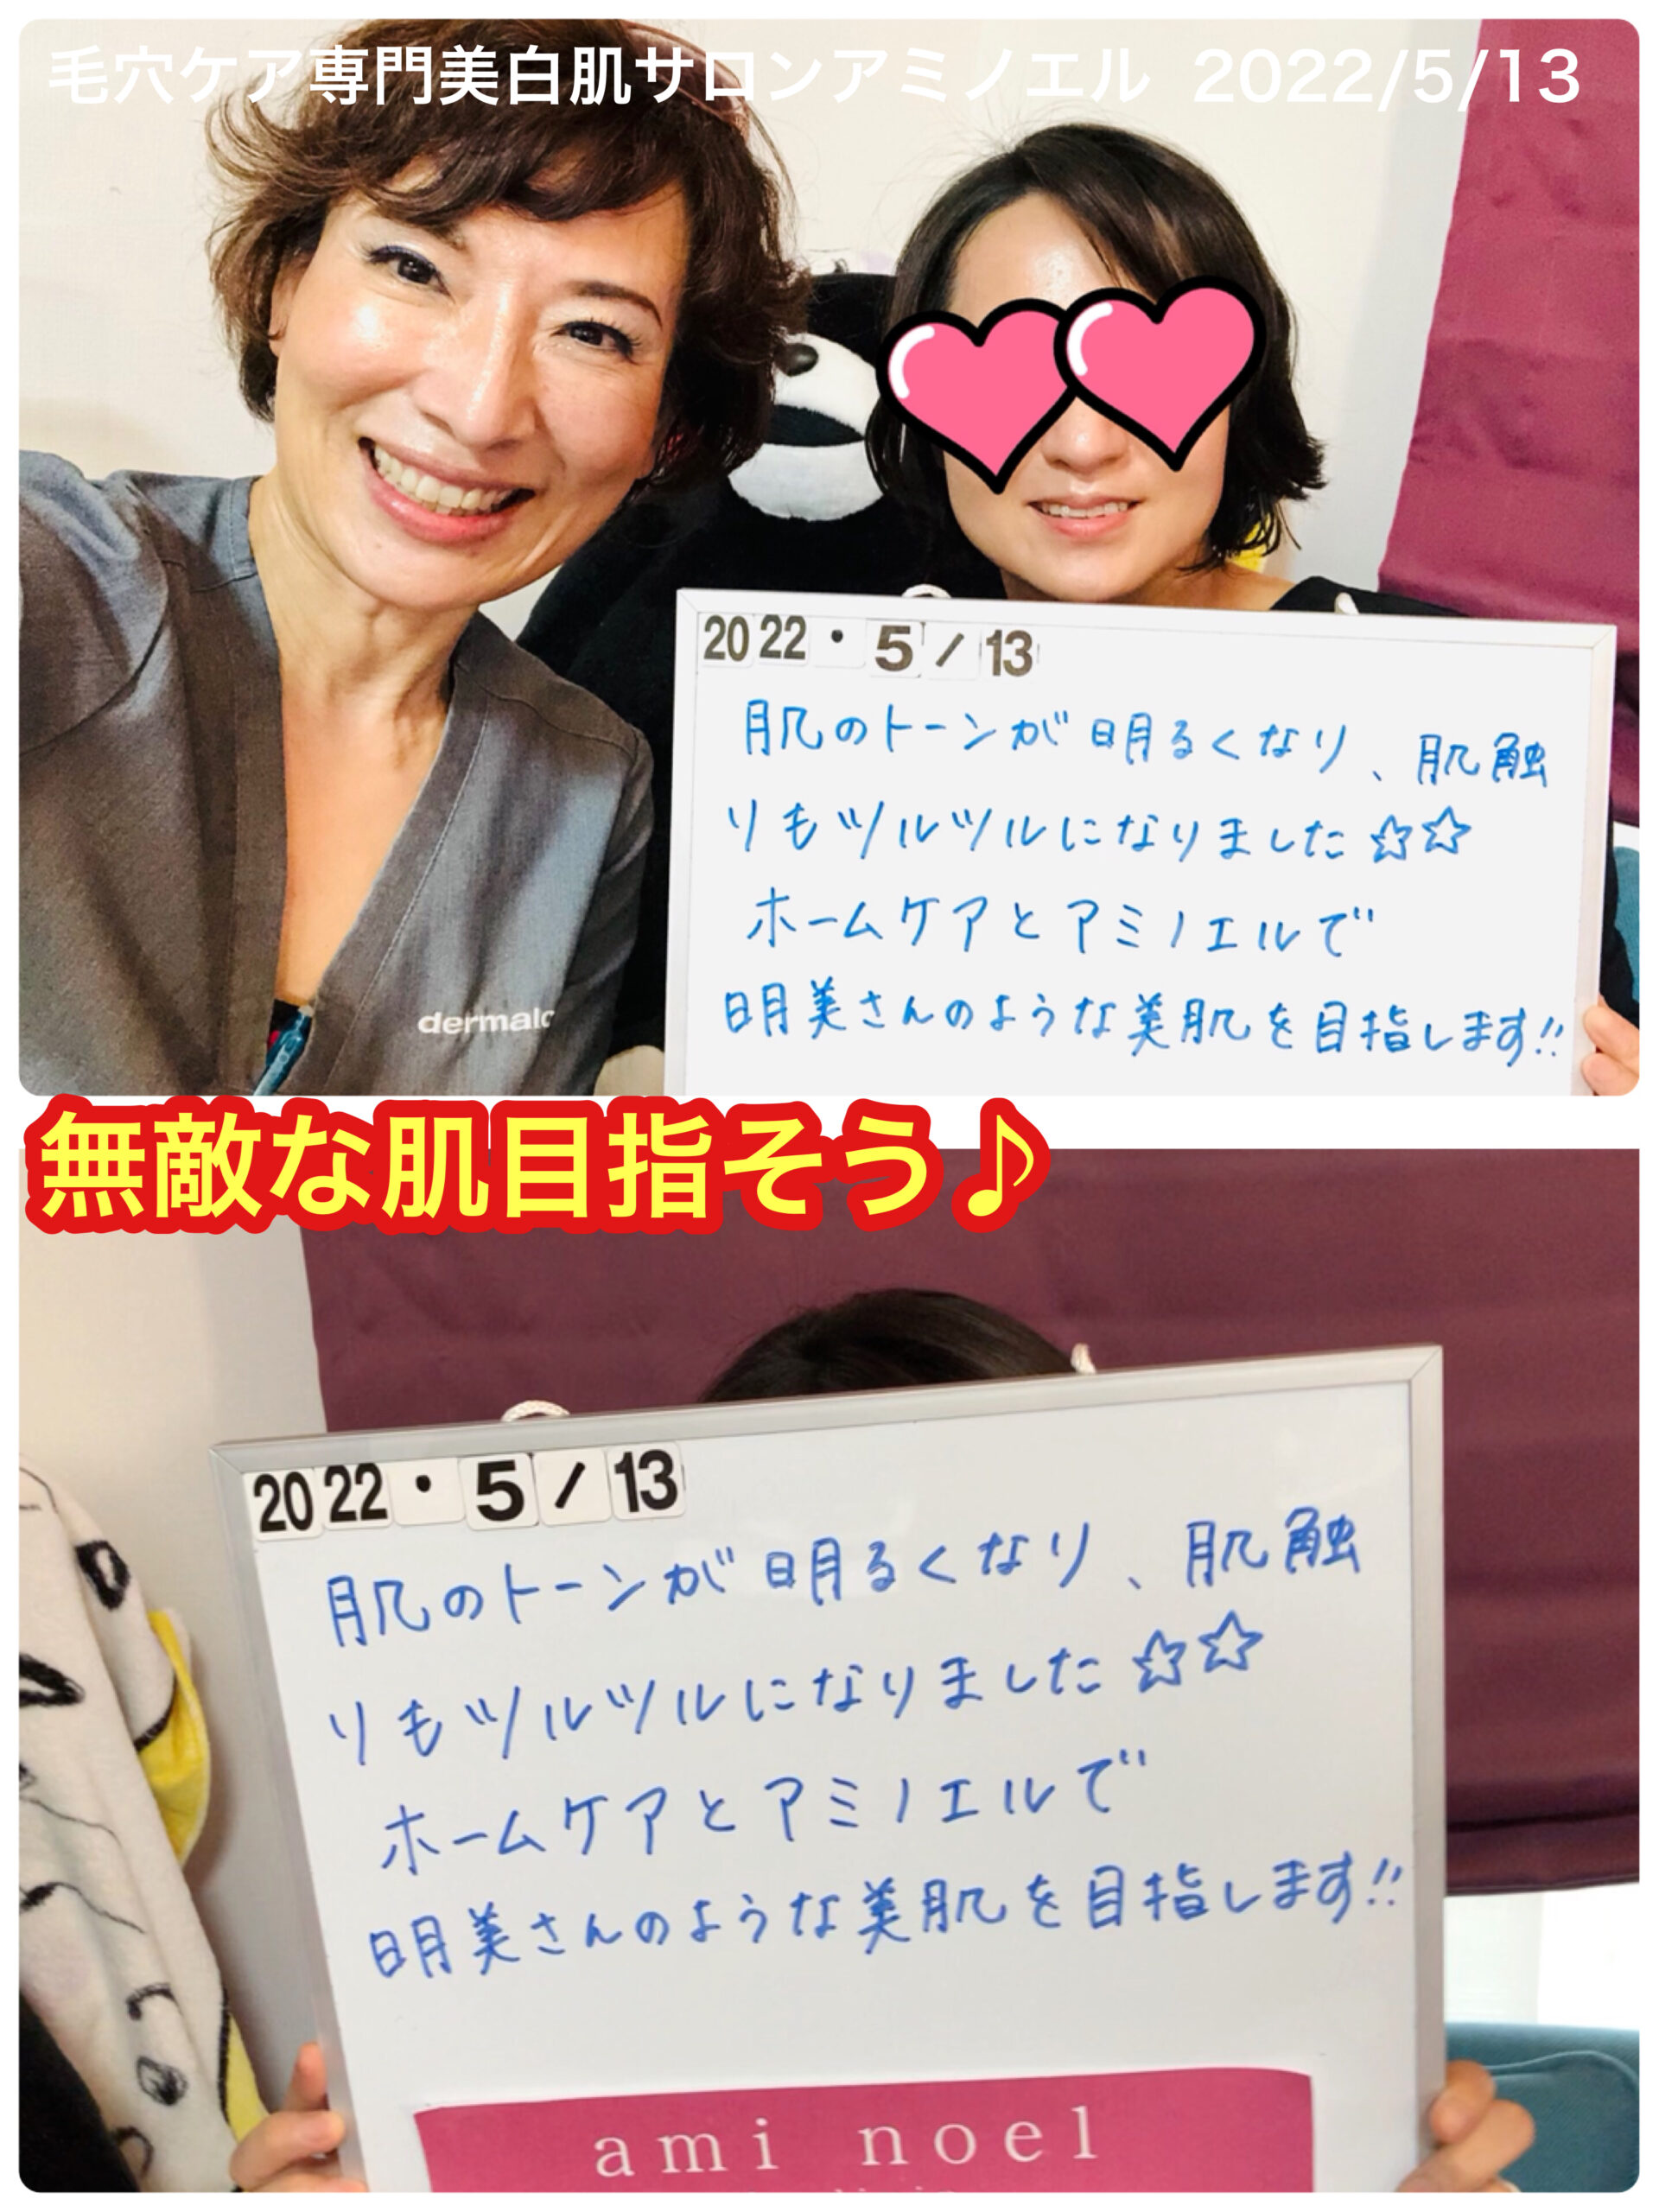 毛穴ケア専門美白肌サロンアミノエル 2022/5/13
2022・5/13
肌のトーンが明るくなり、肌触
りもツルツルになりました☆☆
ホームケアとアミノエルで
明美さんのような美肌を目指します!!
dermalo
無敵な肌目指そう♪
2022・5/13
肌のトーンが明るくなり、肌触
りもツルツルになりました☆☆
ホームケアとアミノエルで
明美さんのような美肌を目指します!!
ami noel